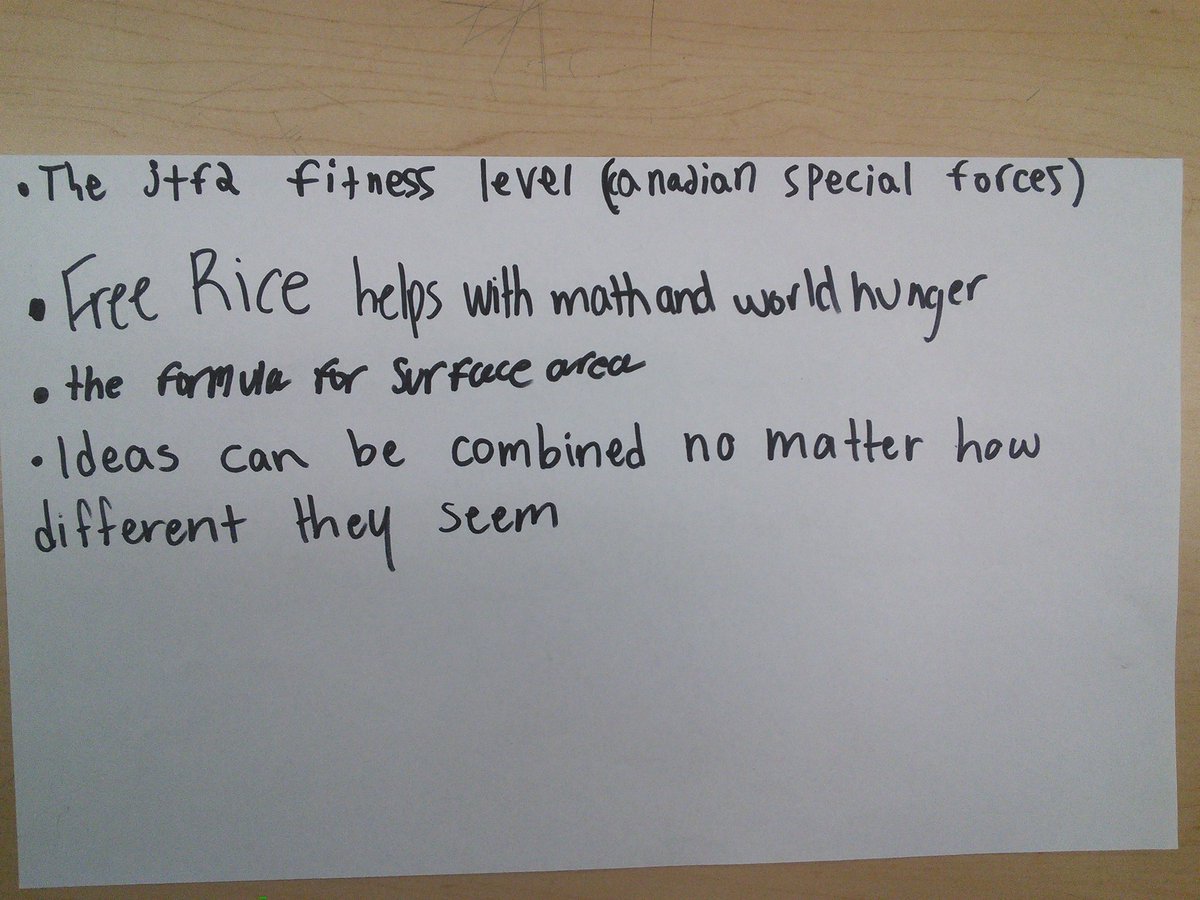 • The jtf2 fitness level (canadian special forces)
• Free Rice helps with math and world hunger
• the formula for surface area
• Ideas can be combined no matter how
different they seem